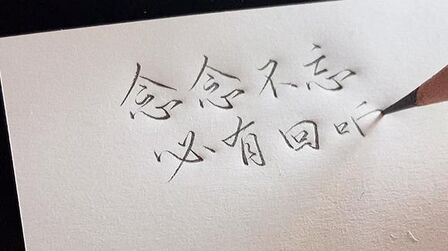 念念不忘
必有回